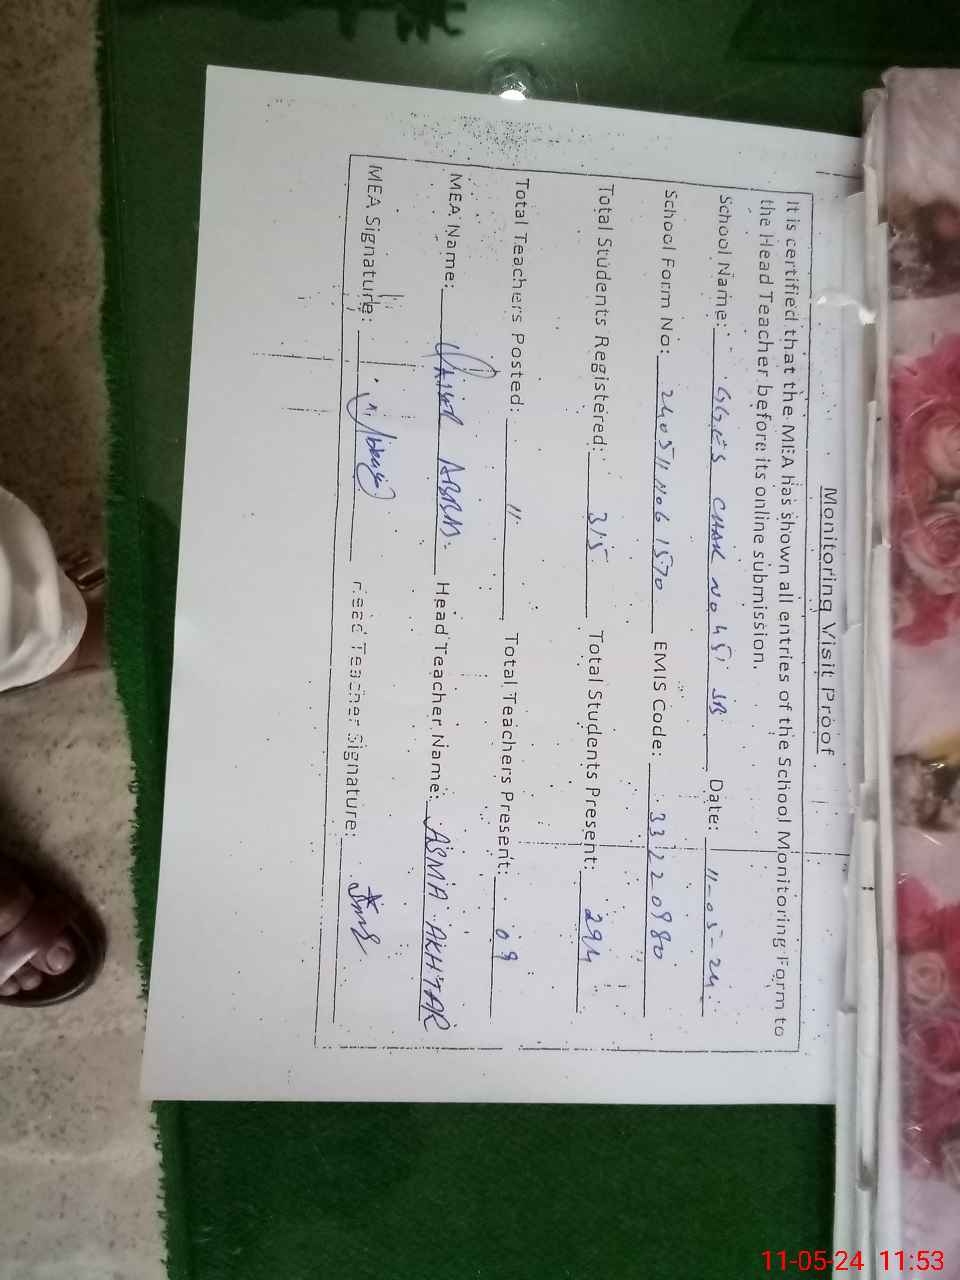 Monitoring Visit Proof
It is certified that the MEA has shown all entries of the School Monitoring Form to
the Head Teacher before its online submission.
School Name: GGES CHAK NO 451 JB Date: 11-05-24.
School Form No: EMIS Code: 33220980
Total Students Registered: 315 Total Students Present: 294
Total Teachers Posted: 11 Total Teachers Present: 09
MEA Name: Head Teacher Name: ASMA AKHTAR
MEA Signature: Head Teacher Signature:
11-05-24 11:53